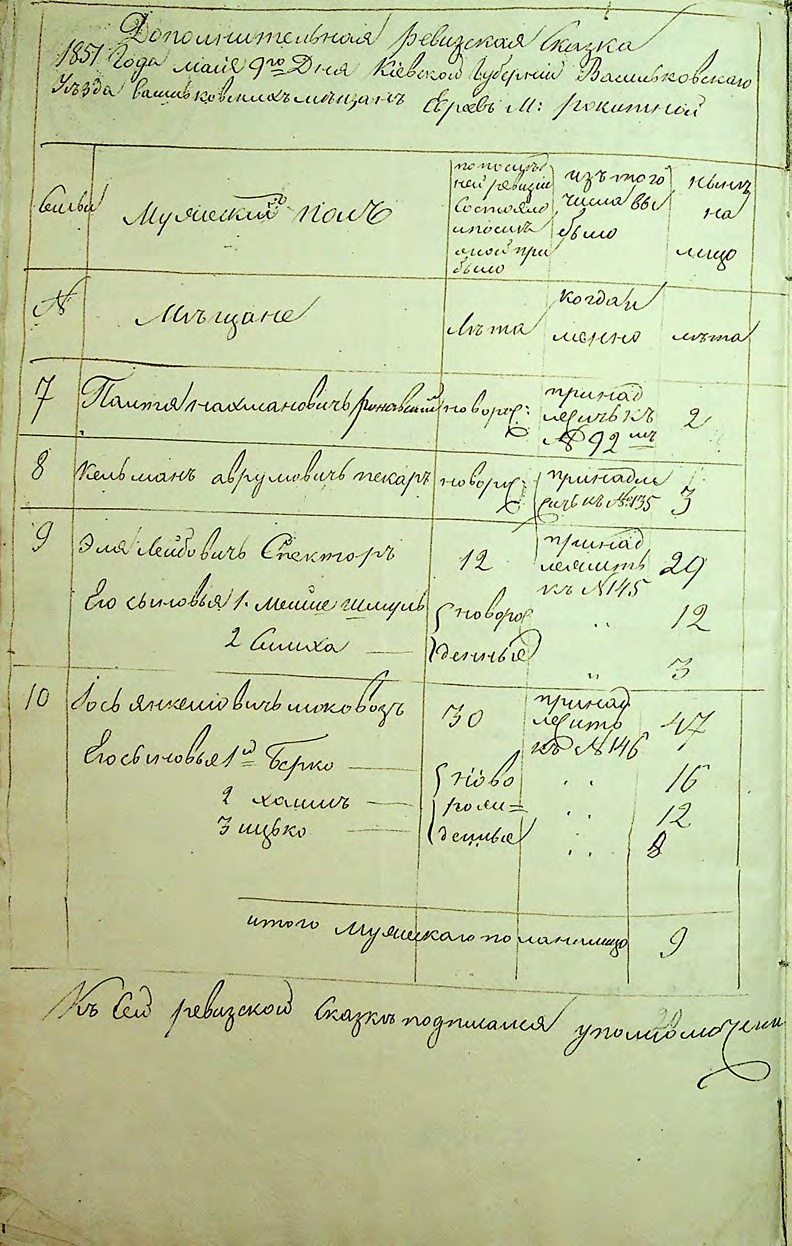 Дополнительная ревизская Сказка
1851 Года мая 9го Дня Кіевской Губерніи Васильковскаго
Уѣзда васильковскихъ мѣщанъ Евреевъ М: рокитной
Семьи
Мужескій полъ
по послѣд
ней ревизіи
состояло
и послѣ
оной при
было
изъ того
числа вы
было
нынѣ
на
лицо
№
Мѣщане
Лѣта
когда и
менно
лѣта
7 новорож:
принад
лежитъ къ
№ 92мъ
2
8 Кельманъ аврумовичъ пекаръ новорж:
принадле
житъ къ №135
3
9 Эля Лейбовичъ Спекторъ 12
принад
лежитъ
къ №145
29
Его сыновья 1. Мейше Шмуль новорож 12
2 Симха денные 3
10 Іось Янкеліовичъ 30
принад
лежитъ
къ №146
47
Его сыновья 1й Берко ново 16
2 хаимъ рож= 12
3 ицько денные 8
итого мужескаго пола налицо 9
Къ Сей ревизской Сказкѣ подписался уполномочени